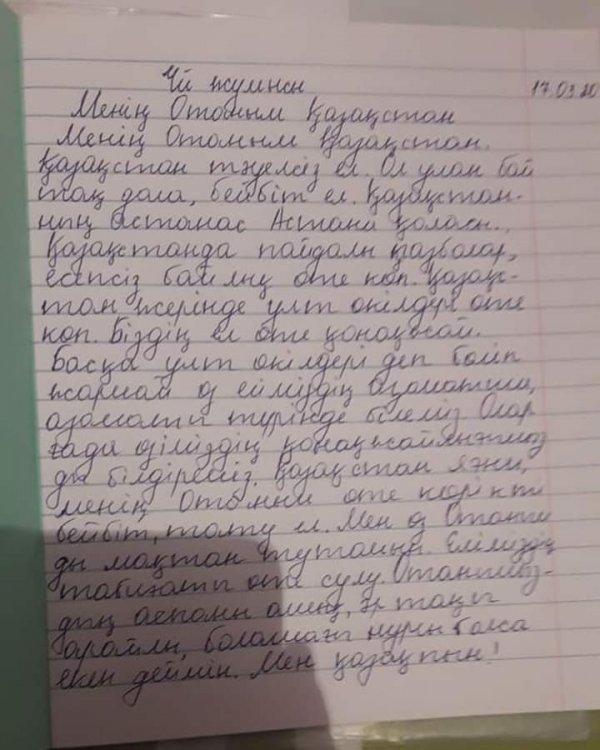 Үй жумисн 17.03.20
Менің Отаным Қазақстан
Менің Отаным Қазақстан.
Қазақстан тәуелсіз ел. Ол ұлан бай
тақ дала, бейбіт ел. Қазақстан-
ның астанас Астана қаласы.
Қазақстанда пайдалы қазбалар,
есепсіз байлық өте көп. Қазақс-
тан жерінде ұлт өкілдері өте
көп. Біздің ел өте қонақжай.
Басқа ұлт өкілдері деп бөліп
жармай өз еліміздің азаматша,
азаматы түрінде білеміз. Олар
ғада өзіміздің
ды білдіреміз. Қазақстан яғни,
менің Отаным өте көрікті
бейбіт, тату ел. Мен өз Отаным
ды мақтан тұтамын. Еліміздің
табиғаты өте сұлу. Отанымыз-
дың аспаны ашық, әр таңы
арайлы, болашағы нұрлы болса
екен деймін. Мен қазақпын!